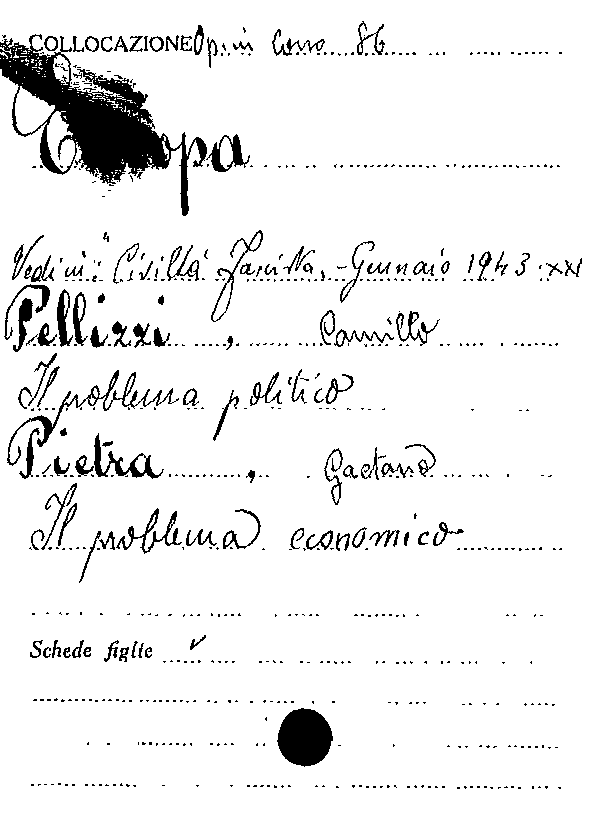 COLLOCAZIONE Op. in Corso 86
Europa
Vedi in: "Civiltà Fascista, - Gennaio 1943 - XXI
Pellizzi, Camillo
Il problema politico
Pietra, Gaetano
Il problema economico
Schede figlie ✓